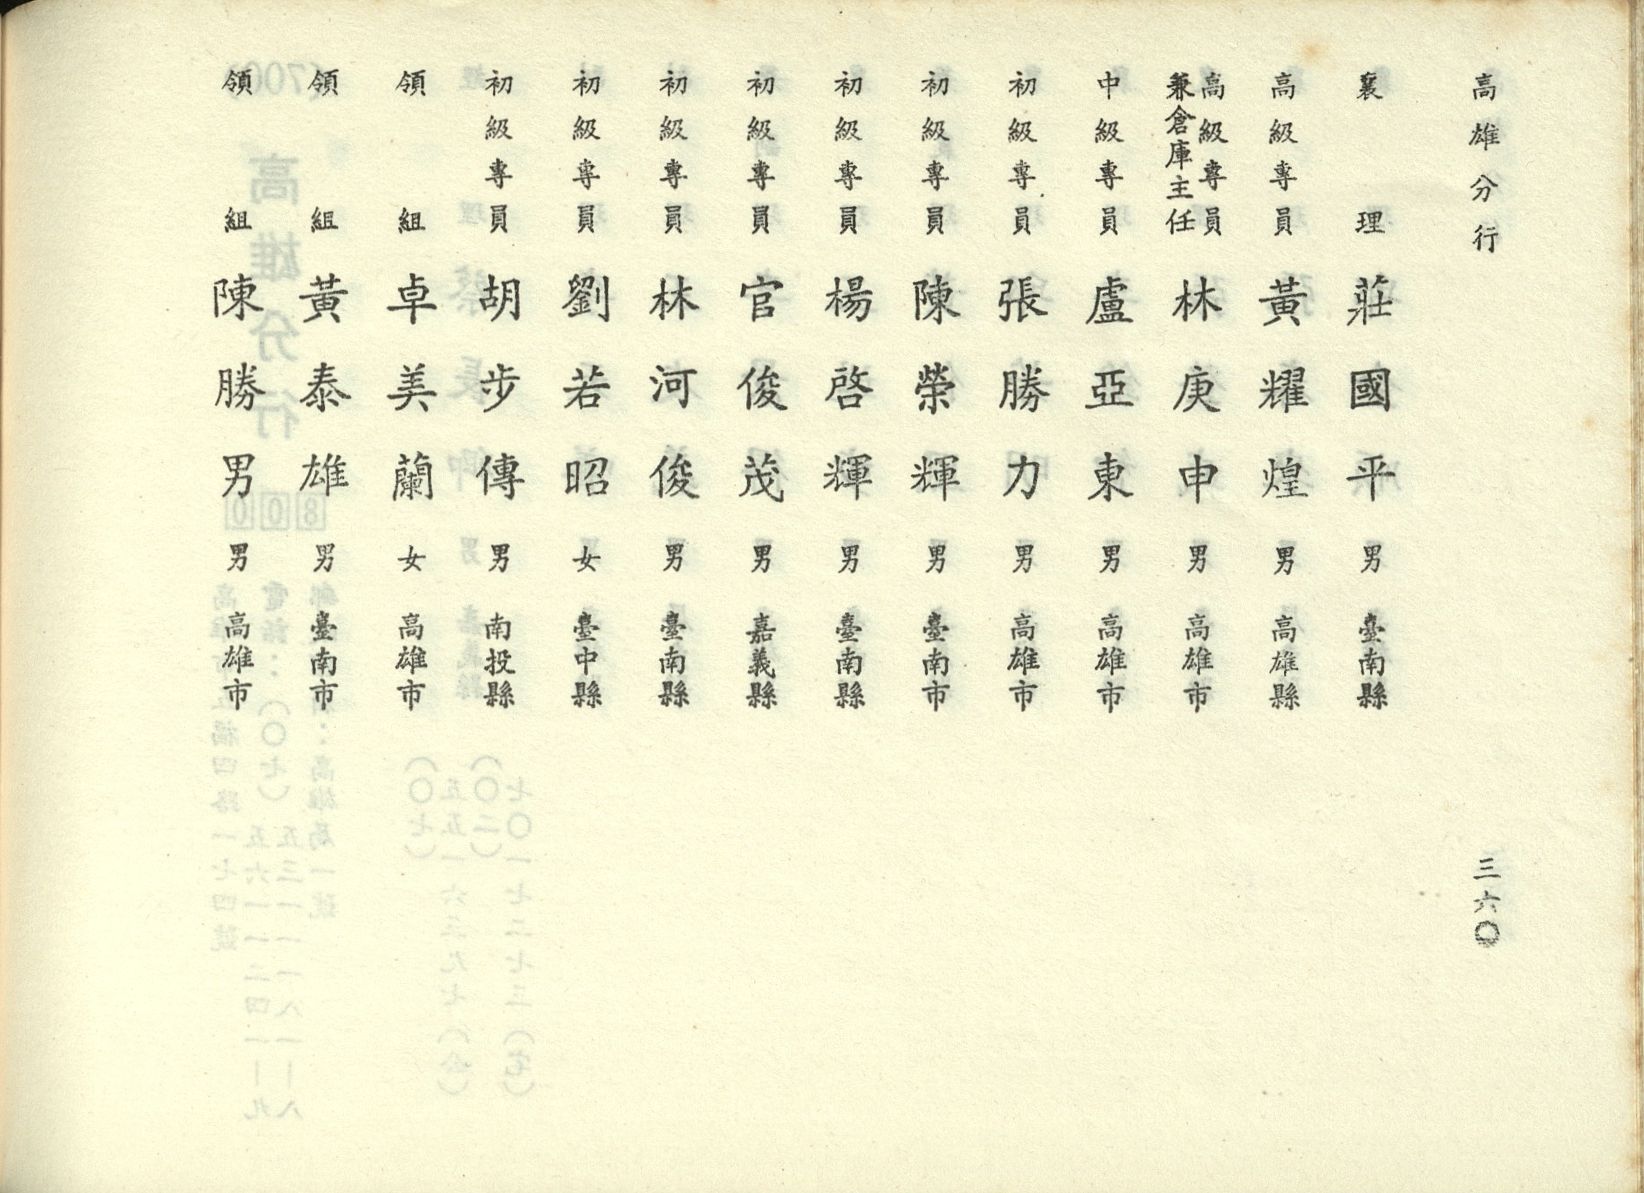 高雄分行
三六〇
襄理 莊國平 男 臺南縣
高級專員 黃耀煌 男 高雄縣
高級專員兼倉庫主任 林庚申 男 高雄市
中級專員 盧亞東 男 高雄市
初級專員 張勝力 男 高雄市
初級專員 陳榮輝 男 臺南市
初級專員 楊啓輝 男 臺南縣
初級專員 官俊茂 男 嘉義縣
初級專員 林河俊 男 臺南縣
初級專員 劉若昭 女 臺中縣
初級專員 胡步傳 男 南投縣
領組 卓美蘭 女 高雄市
領組 黃泰雄 男 臺南市
領組 陳勝男 男 高雄市